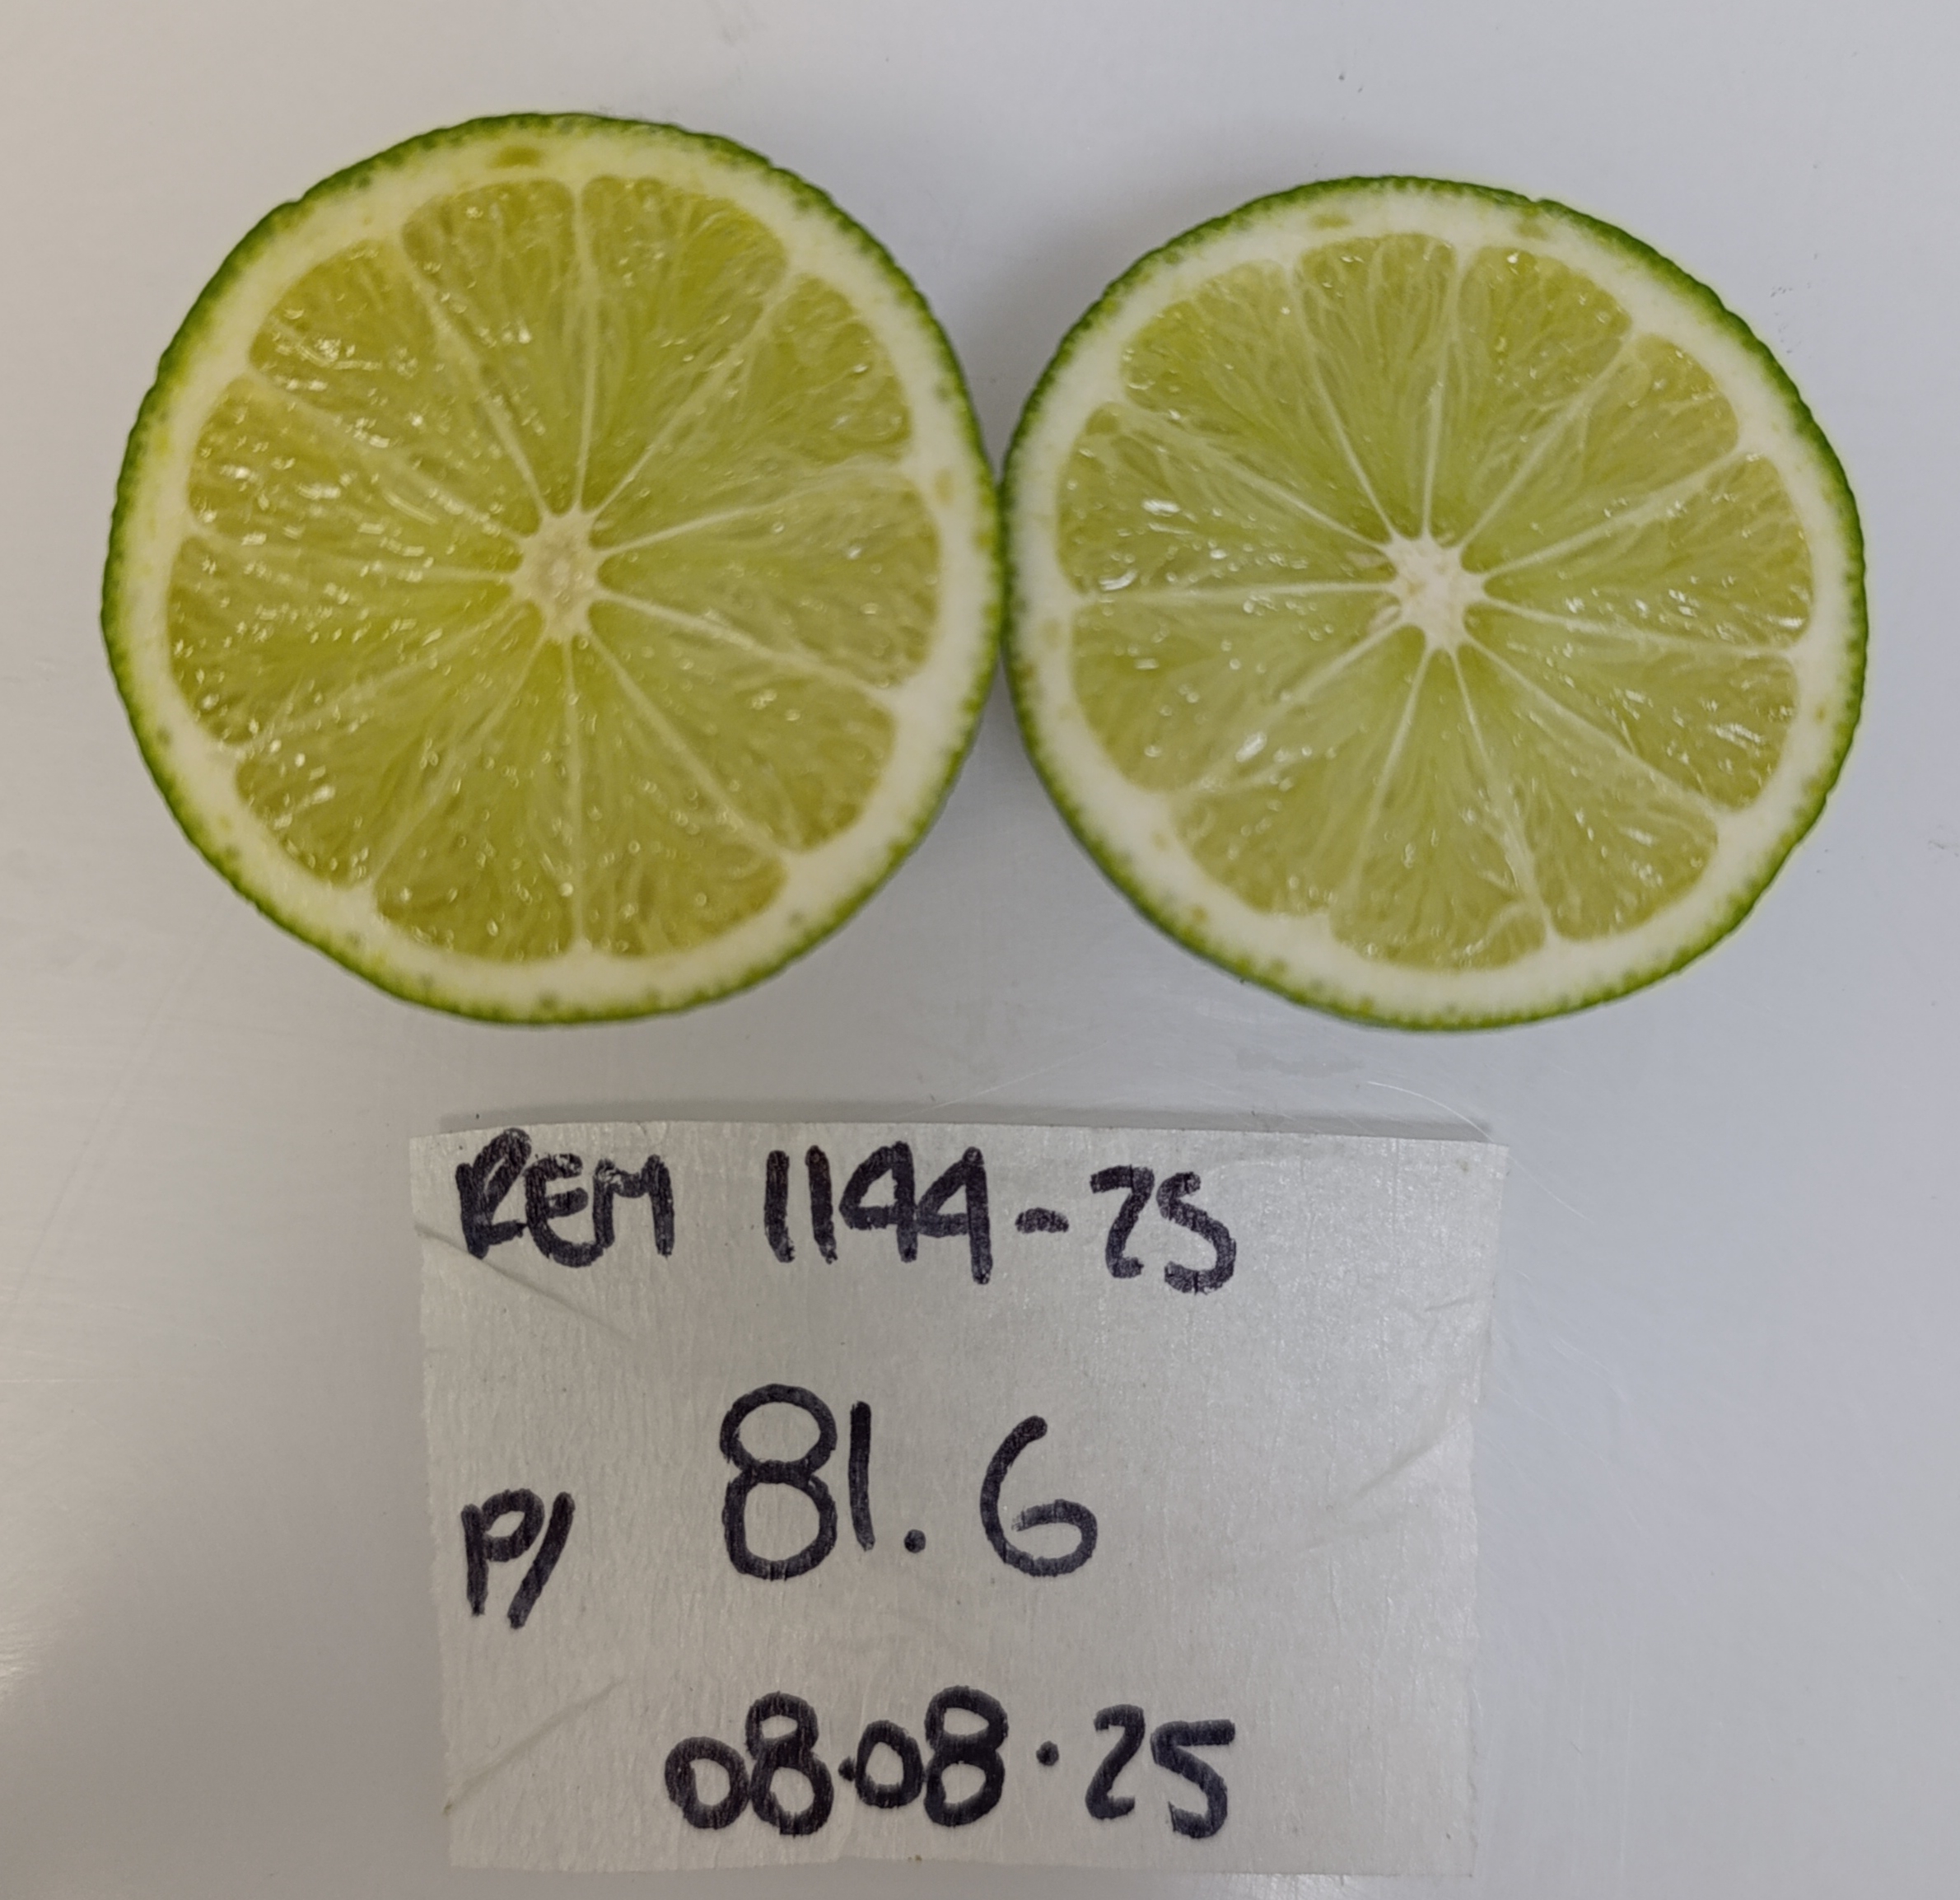 REM 1144-25
P/ 81.6
08.08.25